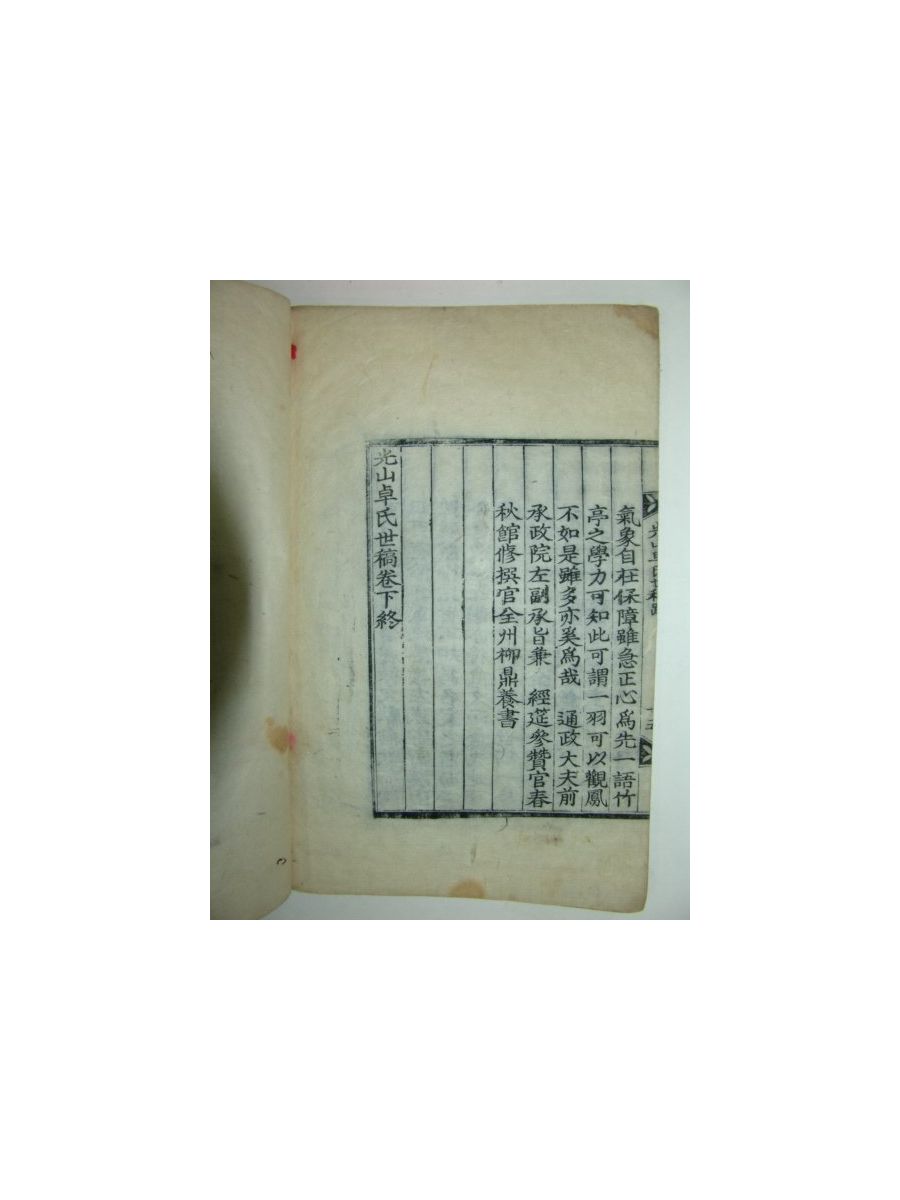 光山卓氏世稿跋
氣象自在保障雖急正心爲先一語竹
亭之學力可知此可謂一羽可以觀鳳
不如是雖多亦奚爲哉　通政大夫前
承政院左副承旨兼　經筵參贊官春
秋館修撰官全州柳鼎養書
光山卓氏世稿卷下終